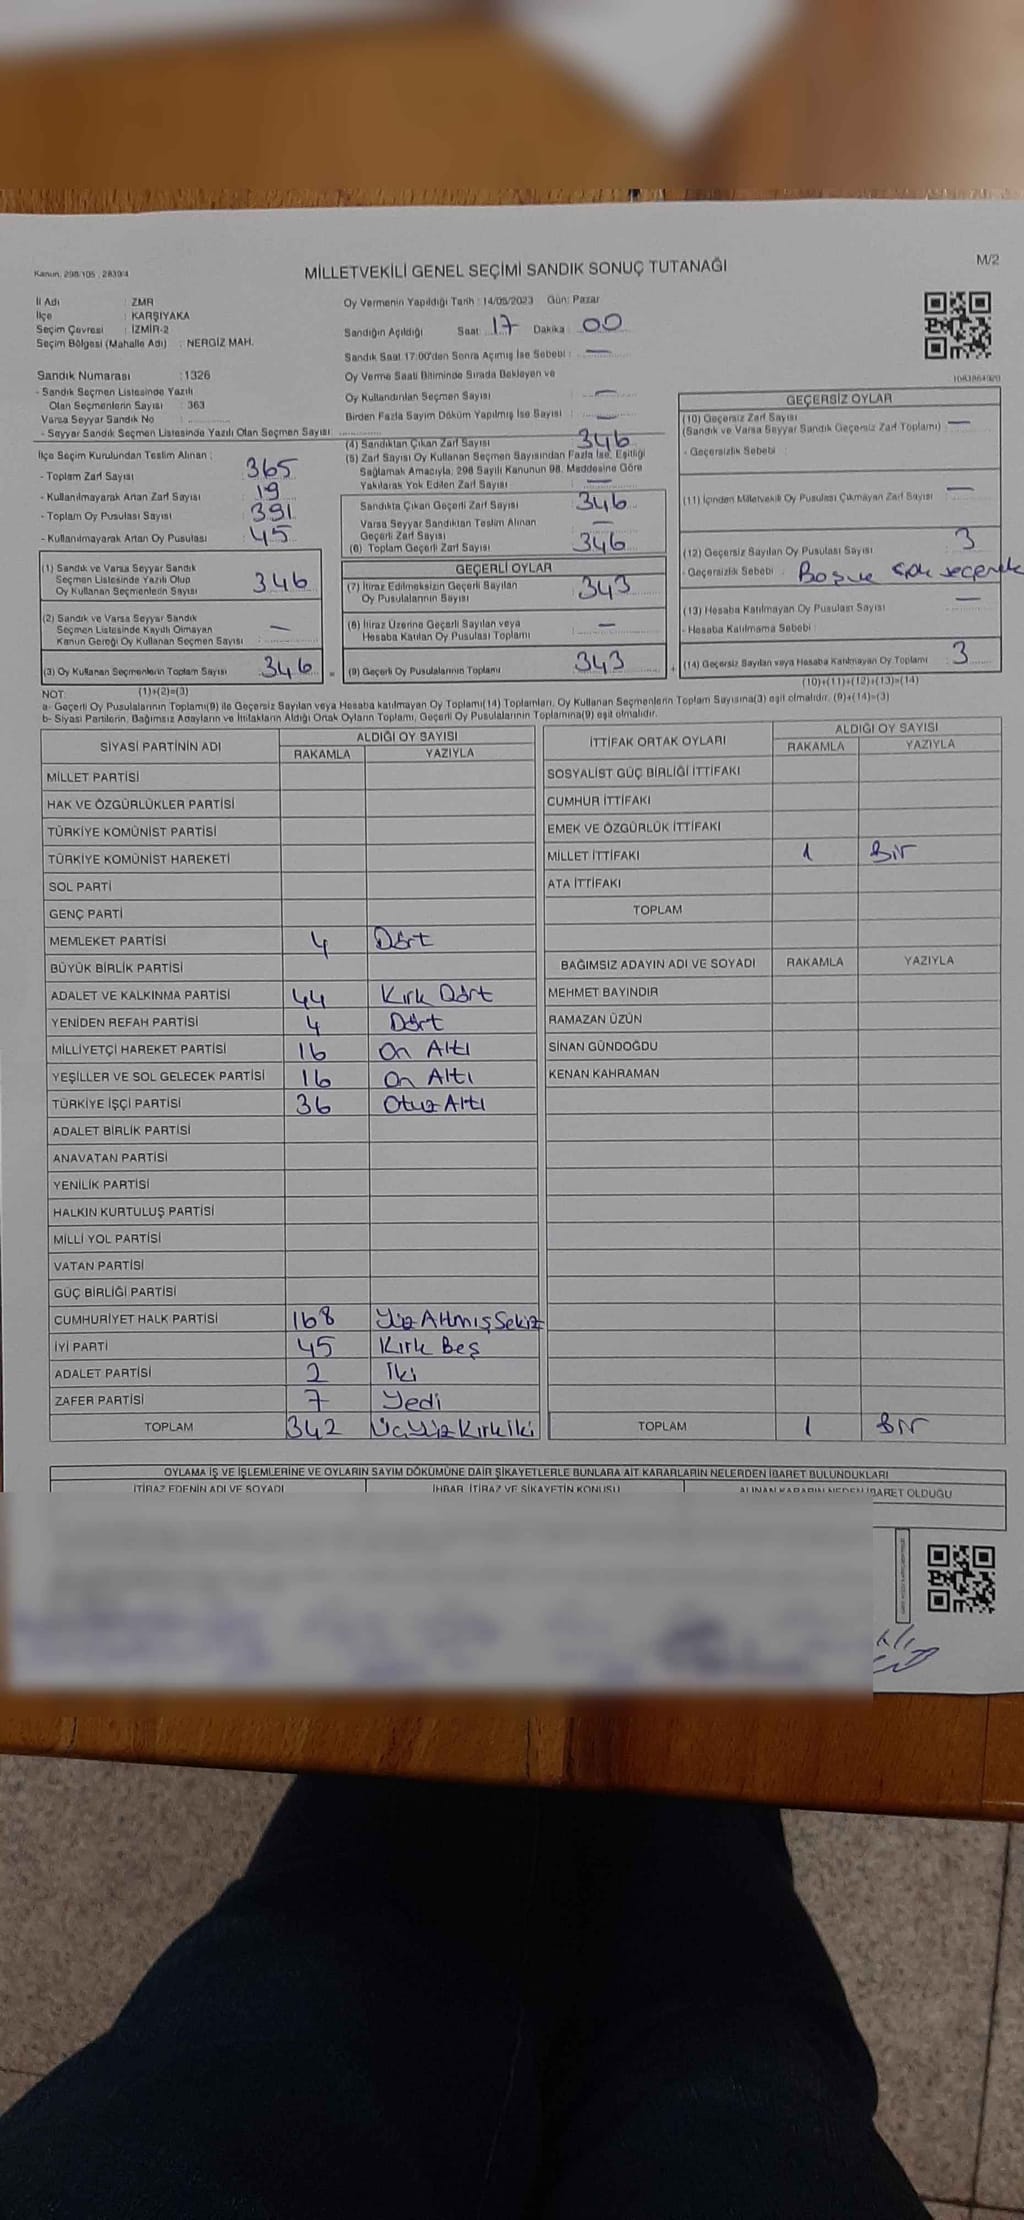 Kanun: 298/105 , 2839/4
MİLLETVEKİLİ GENEL SEÇİMİ SANDIK SONUÇ TUTANAĞI
M/2
İl Adı : ZMR
İlçe : KARŞIYAKA
Seçim Çevresi : İZMİR-2
Seçim Bölgesi (Mahalle Adı) : NERGİZ MAH.
Oy Vermenin Yapıldığı Tarih : 14/05/2023 Gün: Pazar
Sandığın Açıldığı Saat: 17 Dakika : 00
Sandık Saat 17:00'den Sonra Açımış İse Sebebi : —
Sandık Numarası : 1326
- Sandık Seçmen Listesinde Yazılı
Olan Seçmenlerin Sayısı : 363
Varsa Seyyar Sandık No :
- Seyyar Sandık Seçmen Listesinde Yazılı Olan Seçmen Sayısı:
Oy Verme Saati Bitiminde Sırada Bekleyen ve
Oy Kullandırılan Seçmen Sayısı : —
Birden Fazla Sayım Döküm Yapılmış İse Sayısı : —
İlçe Seçim Kurulundan Teslim Alınan :
- Toplam Zarf Sayısı : 365
- Kullanılmayarak Artan Zarf Sayısı : 19
- Toplam Oy Pusulası Sayısı : 391
- Kullanılmayarak Artan Oy Pusulası : 45
(4) Sandıktan Çıkan Zarf Sayısı : 346
(5) Zarf Sayısı Oy Kullanan Seçmen Sayısından Fazla İse, Eşitliği
Sağlamak Amacıyla, 298 Sayılı Kanunun 98. Maddesine Göre
Yakılarak Yok Edilen Zarf Sayısı : —
Sandıkta Çıkan Geçerli Zarf Sayısı : 346
Varsa Seyyar Sandıktan Teslim Alınan
Geçerli Zarf Sayısı : —
(6) Toplam Geçerli Zarf Sayısı : 346
(1) Sandık ve Varsa Seyyar Sandık
Seçmen Listesinde Yazılı Olup
Oy Kullanan Seçmenlerin Sayısı : 346
(2) Sandık ve Varsa Seyyar Sandık
Seçmen Listesinde Kayıtlı Olmayan
Kanun Gereği Oy Kullanan Seçmen Sayısı : —
(3) Oy Kullanan Seçmenlerin Toplam Sayısı : 346
(1)+(2)=(3)
GEÇERLİ OYLAR
(7) İtiraz Edilmeksizin Geçerli Sayılan
Oy Pusulalarının Sayısı : 343
(8) İtiraz Üzerine Geçerli Sayılan veya
Hesaba Katılan Oy Pusulası Toplamı : —
(9) Geçerli Oy Pusulalarının Toplamı : 343
GEÇERSİZ OYLAR
(10) Geçersiz Zarf Sayısı
(Sandık ve Varsa Seyyar Sandık Geçersiz Zarf Toplamı) : —
- Geçersizlik Sebebi :
(11) İçinden Milletvekili Oy Pusulası Çıkmayan Zarf Sayısı : —
(12) Geçersiz Sayılan Oy Pusulası Sayısı : 3
- Geçersizlik Sebebi : Boş ve çok seçenek
(13) Hesaba Katılmayan Oy Pusulası Sayısı : —
- Hesaba Katılmama Sebebi :
(14) Geçersiz Sayılan veya Hesaba Katılmayan Oy Toplamı : 3
(10)+(11)+(12)+(13)=(14)
NOT:
a- Geçerli Oy Pusulalarının Toplamı(9) ile Geçersiz Sayılan veya Hesaba katılmayan Oy Toplamı(14) Toplamları, Oy Kullanan Seçmenlerin Toplam Sayısına(3) eşit olmalıdır. (9)+(14)=(3)
b- Siyasi Partilerin, Bağımsız Adayların ve İttifakların Aldığı Ortak Oyların Toplamı, Geçerli Oy Pusulalarının Toplamına(9) eşit olmalıdır.
SİYASİ PARTİNİN ADI ALDIĞI OY SAYISI
RAKAMLA YAZIYLA
MİLLET PARTİSİ
HAK VE ÖZGÜRLÜKLER PARTİSİ
TÜRKİYE KOMÜNİST PARTİSİ
TÜRKİYE KOMÜNİST HAREKETİ
SOL PARTİ
GENÇ PARTİ
MEMLEKET PARTİSİ 4 Dört
BÜYÜK BİRLİK PARTİSİ
ADALET VE KALKINMA PARTİSİ 44 Kırk Dört
YENİDEN REFAH PARTİSİ 4 Dört
MİLLİYETÇİ HAREKET PARTİSİ 16 On Altı
YEŞİLLER VE SOL GELECEK PARTİSİ 16 On Altı
TÜRKİYE İŞÇİ PARTİSİ 36 Otuz Altı
ADALET BİRLİK PARTİSİ
ANAVATAN PARTİSİ
YENİLİK PARTİSİ
HALKIN KURTULUŞ PARTİSİ
MİLLİ YOL PARTİSİ
VATAN PARTİSİ
GÜÇ BİRLİĞİ PARTİSİ
CUMHURİYET HALK PARTİSİ 168 Yüz Altmış Sekiz
İYİ PARTİ 45 Kırk Beş
ADALET PARTİSİ 2 İki
ZAFER PARTİSİ 7 Yedi
TOPLAM 342 Üç Yüz Kırk İki
İTTİFAK ORTAK OYLARI ALDIĞI OY SAYISI
RAKAMLA YAZIYLA
SOSYALİST GÜÇ BİRLİĞİ İTTİFAKI
CUMHUR İTTİFAKI
EMEK VE ÖZGÜRLÜK İTTİFAKI
MİLLET İTTİFAKI 1 Bir
ATA İTTİFAKI
TOPLAM
BAĞIMSIZ ADAYIN ADI VE SOYADI RAKAMLA YAZIYLA
MEHMET BAYINDIR
RAMAZAN ÜZÜN
SİNAN GÜNDOĞDU
KENAN KAHRAMAN
TOPLAM 1 Bir
OYLAMA İŞ VE İŞLEMLERİNE VE OYLARIN SAYIM DÖKÜMÜNE DAİR ŞİKAYETLERLE BUNLARA AİT KARARLARIN NELERDEN İBARET BULUNDUKLARI
İTİRAZ EDENİN ADI VE SOYADI İHBAR, İTİRAZ VE ŞİKAYETİN KONUSU ALINAN KARARIN NEDEN İBARET OLDUĞU